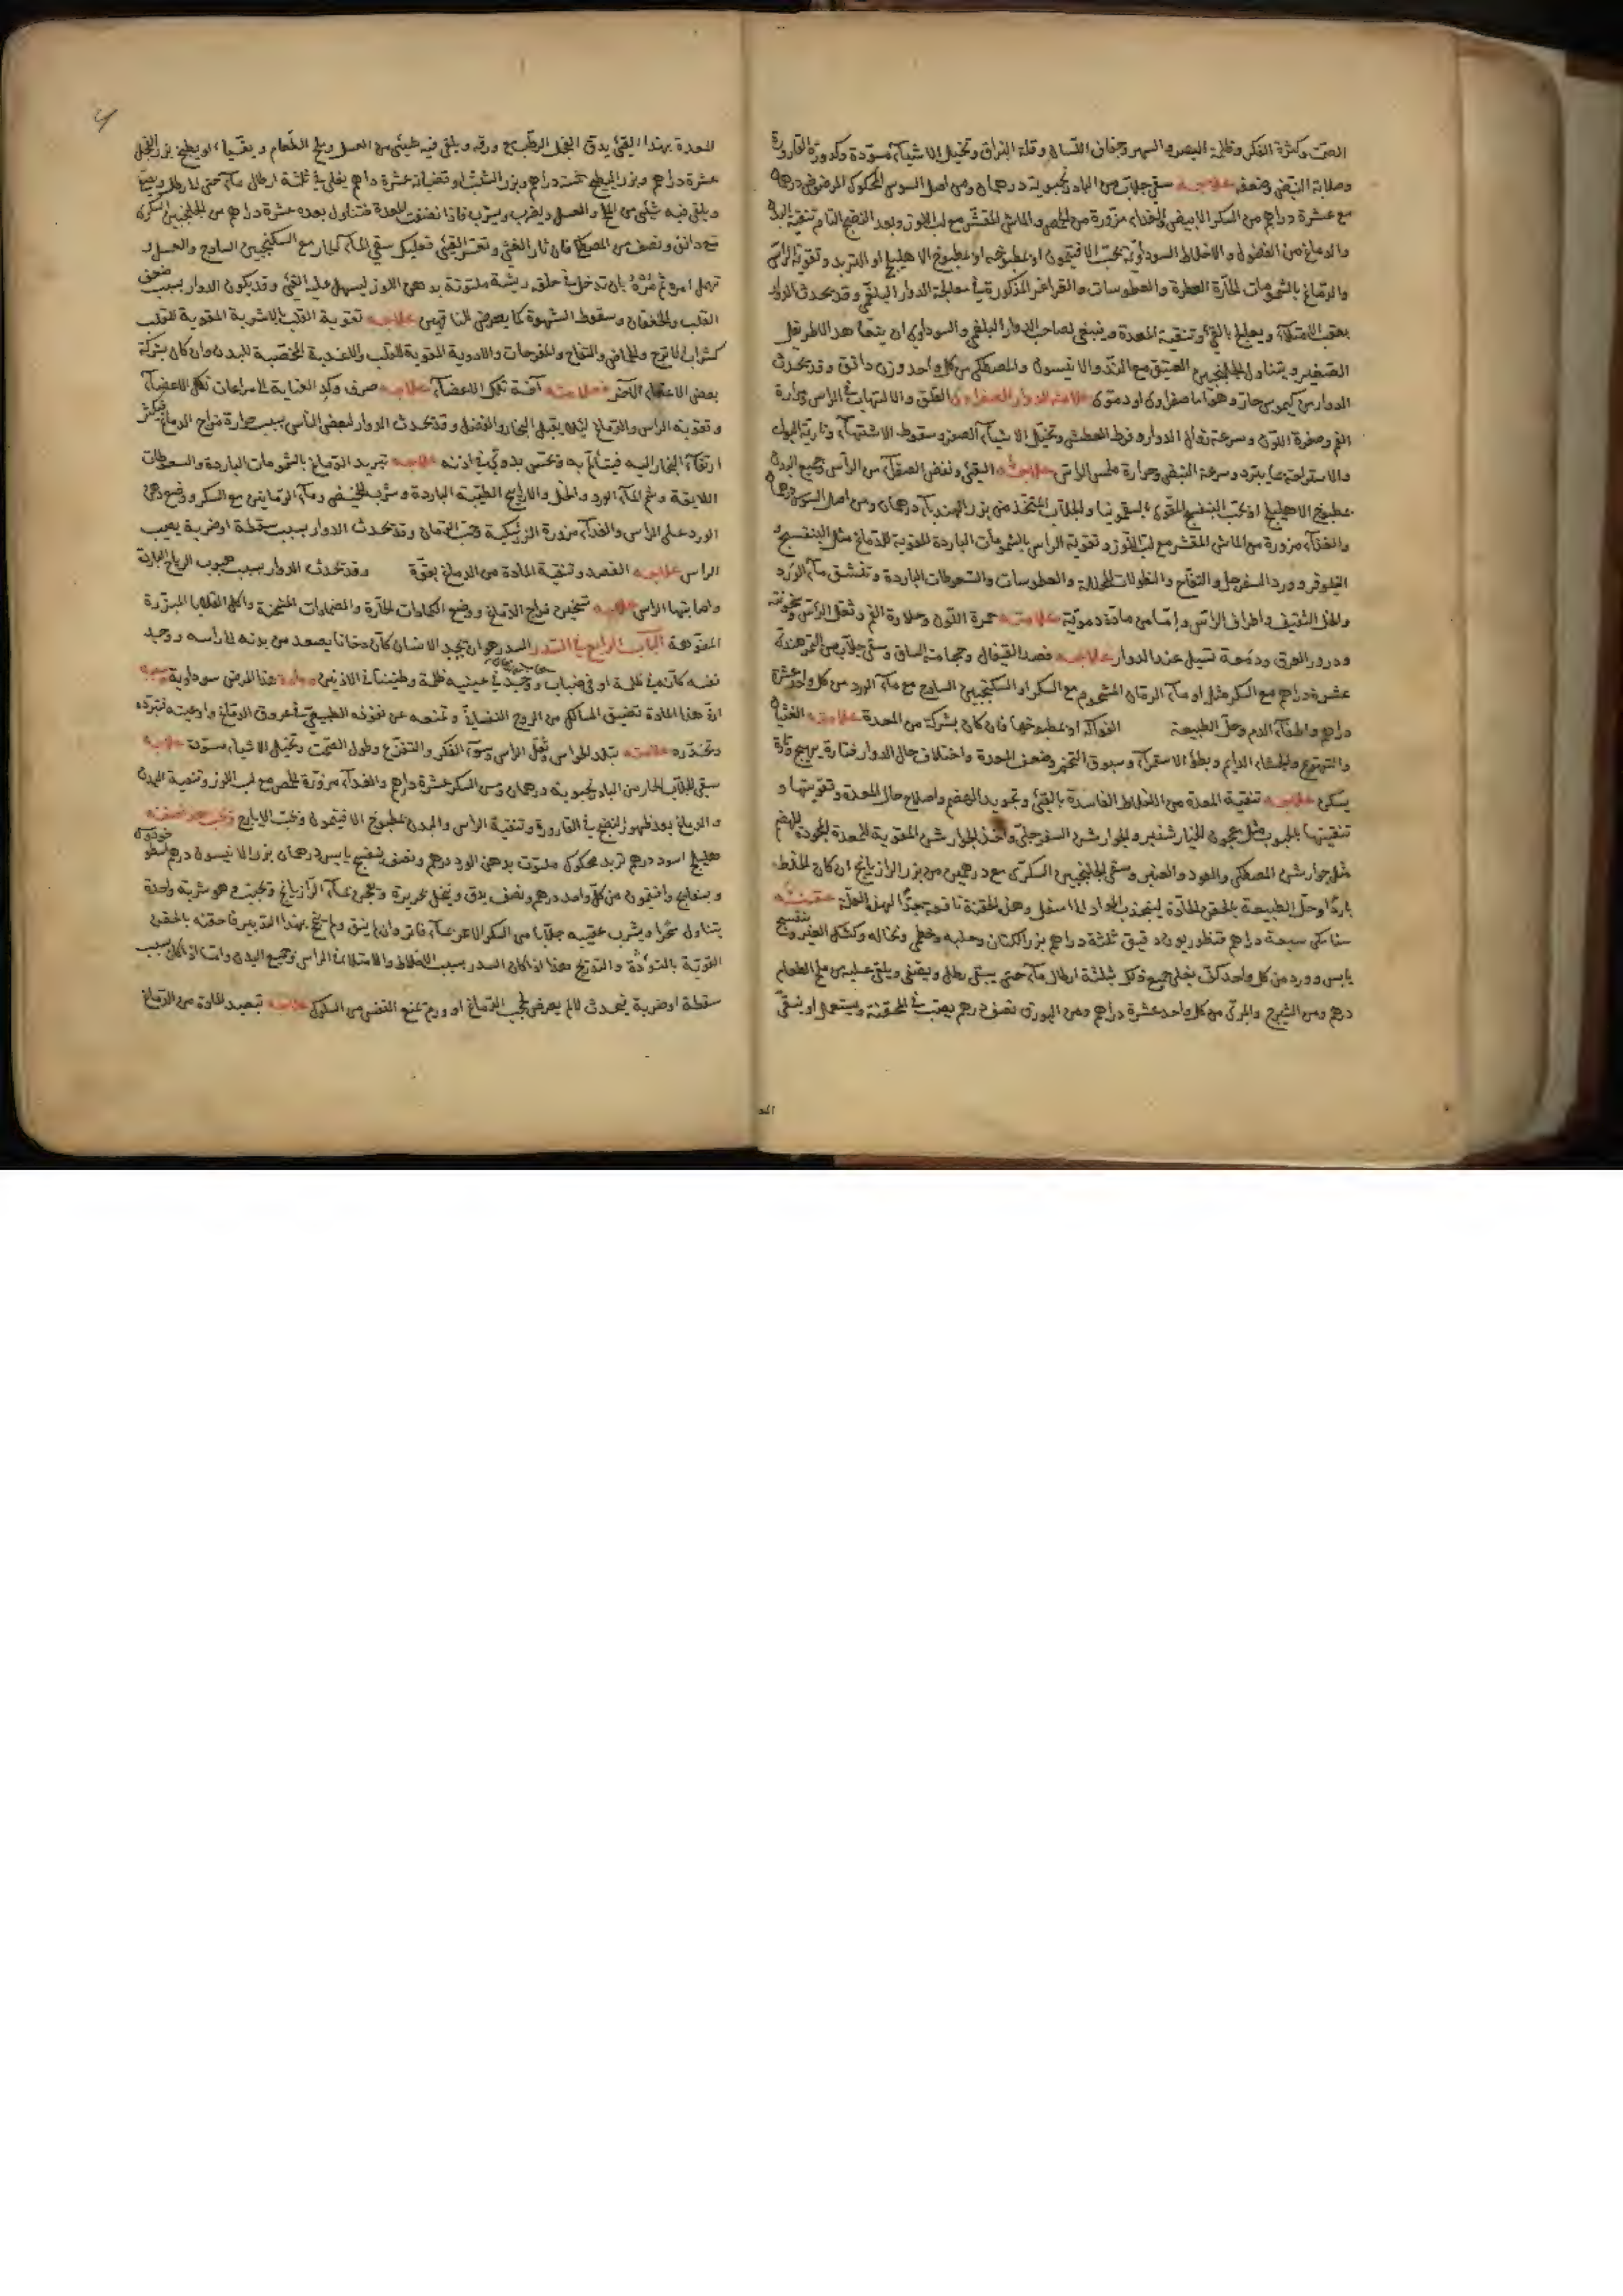 الصمت وكثرة الفكر وظلمة البصر والسهر وجفاف اللسان وقلة البزاق وتخيل الاشياء مسودة وكدورة القارورة
وصلابة النبض وضعفه علاجه سقى جلاب من الباد نجبوية درهمان ومن اصل السوس المحكوك المرضوض درهم
مع عشرة دراهم من السكر الابيض والغذاء مزورة من الحمص والماش المقشر مع لب اللوز وبعد النضج التام تنقية البدن
والدماغ من الفضول والاخلاط السوداوية بحب الافتيمون او مطبوخه او مطبوخ الاهليلج او التربد وتقوية الراس
والدماغ بالشمومات الحارة العطرة والعطوسات والغراغر المذكورة في معالجة الدوار البلغمى وقد يحدث الدوار
بعقب الامتلاء ويعالج بالقئ وتنقية المعدة وينبغى لصاحب الدوار البلغمى والسوداوى ان يتعاهد الاطريفل
الصغير ويتناول الجلنجبين العتيق مع الند والانيسون والمصطكى من كل واحد وزن دانق وقد يحدث
الدوار من كيموس حار وهو اما صفراوى او دموى علامة الدوار الصفراوى القلق والالتهاب في الراس ومرارة
الفم وصفرة اللون وسرعة زوال الدوار وفرط العطش وتخيل الاشياء الصفر وسقوط الاشتهاء ونارية البول
والاستراحة بما يبرد وسرعة النبض وحرارة ملمس الراس علاجه القئ ونفض الصفراء من الراس وجميع البدن
بمطبوخ الاهليلج او بحب البنفسج المقوى بالسقمونيا والجلاب المتخذ من بزر الهندباء درهمان ومن اصل السوس درهم
والغذاء مزورة مع الماش المقشر مع لب اللوز وتقوية الراس بالشمومات الباردة المقوية للدماغ مثل البنفسج و
النيلوفر وورد السفرجل والتفاح والنطولات المحللة والعطوسات والسعوطات الباردة وتنشق ماء الورد
والخل الثقيف واطراف الراس واما من مادة دموية علامته حمرة اللون وحلاوة الفم وثقل الراس وسخونته
ودرور العرق ودمعة تسيل عند الدوار علاجه فصد القيفال وحجامة الساق وسقى جلاب من التمر هندى
عشرة دراهم مع السكر مثله او ماء الرمان المشحوم مع السكر او السكنجبين الساذج مع ماء الورد من كل واحد عشرة
دراهم واطفاء الدم وحل الطبيعة الفواكه او مطبوخها فان كان بشركة من المعدة علامته الغثيان
والتهوع والجشاء الدايم وبطؤ الاستمراء وسبوق التخم وضعف المعدة واختلاف حال الدوار فتارة يهيج وتارة
يسكن علاجه تنقية المعدة من الاخلاط الفاسدة بالقئ وتجويد الهضم واصلاح حال المعدة وتقويتها و
تنقيتها بالحبوب مثل معجون الخيار شنبر والجوارش السفرجلى واخذ الجوارش المقوية للمعدة المجودة للهضم
مثل جوارش المصطكى والعود والعنبر وسقى الجلنجبين السكرى مع درهمين من بزر الرازيانج ان كان الخلط
باردا وحل الطبيعة بالحقن الحادة لينجذب المواد الى اسفل وهذه الحقنة نافعة جدا لهذه العلة حقنة
سنا مكى سبعة دراهم قنطوريون دقيق ثلثة دراهم بزر الكتان وحلبه وخطمى ونخاله وكشك الشعير وبنفسج
يابس وورد من كل واحد كف يغلى جميع ذلك بثلثة ارطال ماء حتى يبقى رطل ويصفى ويلقى عليه من ملح الطعام
درهم ومن الشيرج والمرى من كل واحد عشرة دراهم ومن البورق نصف درهم يصب في المحقنة ويستعمل او ينقى
المعدة
المعدة بهذا القئ يدق الفجل الرطب مع ورقه ويلقى فيه شئ من العسل وملح الطعام ويتقيأ او يطبخ بزر الفجل
عشرة دراهم وبزر البطيخ خمسة دراهم وبزر الشبث او قضبانه عشرة دراهم يغلى في ثلثة ارطال ماء حتى رطل ويصفى
ويلقى فيه شئ من الملح والعسل ويضرب ويشرب فاذا نظفت المعدة فتناول بعده عشرة دراهم من الجلنجبين السكرى
مع دانق ونصف من المصطكا فان ثار الغثى وتعسر القئ فعليك سقى الماء الحار مع السكنجبين الساذج والعسل و
تمهل امره ثم مره بان تدخل في حلقه ريشة ملتوتة بدهن اللوز ليسهل عليه القئ وقد يكون الدوار بسبب ضعف
القلب والخفقان وسقوط الشهوة كما يعرض للناقهين علاجه تقوية القلب بالاشربة المقوية للقلب
كشراب الاترج والحماض والتفاح والمفرحات والادوية المقوية للقلب والاغذية المخصبة للبدن وان كان بشركة
بعض الاعضاء الاخر فعلامته آفة تلك الاعضاء علاجه صرف وكد العناية الى مراعات تلك الاعضاء
وتقوية الراس والدماغ لئلا يقبل البخار والفضل وقد يحدث الدوار لبعض الناس بسبب حرارة مزاج الدماغ فيكثر
ارتقاء البخار اليه فيتألم به ويحس بدوى في اذنه علاجه تبريد الدماغ بالشمومات الباردة والسعوطات
اللايقة وشم الماء الورد والخل والاراييح الطيبة الباردة وشرب المخيض وماء الرمانين مع السكر ووضع دهن
الورد على الراس والغذاء مزورة الزرشكية وحب الرمان وقد يحدث الدوار بسبب سقطة او ضربة يصيب
الراس علاجه الفصد وتنقية المادة من الدماغ بقوة وقد يحدث الدوار بسبب هبوب الرياح الباردة
واصابتها الراس علاجه تسخين مزاج الدماغ ووضع الكمادات الحارة والضمادات المسخنة واكل القلايا المبزرة
المفوهة الباب الرابع في السدر السدر هو ان يجد الانسان كأن دخانا يصعد من بدنه الى راسه ويجد
نفسه كأنه في ظلمة او في ضباب ويجد في عينيه ظلمة وطنينا في الاذنين ومادة هذا المرض سوداوية وسببه
ان هذا المادة تضيق المسالك من الروح النفسانى وتمنعه عن نفوذه الطبيعى في عروق الدماغ واوعيته فتبرده
وتخدره علامته تبلد الحواس وثقل الراس وسوء الفكر والتفزع وطول الصمت وتخيل الاشياء مسودة علاجه
سقى الجلاب الحار من الباد نجبويه درهمان ومن السكر عشرة دراهم والغذاء مزورة الحمص مع لب اللوز وتنقية البدن
والدماغ بعد ظهور النضج في القارورة وتنقية الراس والبدن بمطبوخ الافتيمون وبحب الايارج وبحب هذا صفته
هليلج اسود درهم تربد محكوك ملتوت بدهن الورد درهم ونصف بنفسج يابس درهمان بزر الانيسون درهم اسطوخودوس
وبسفايج وافتيمون من كل واحد درهم ونصف يدق وينخل بحريرة ويعجن بماء الرازيانج ويحبب وهو شربة واحدة
يتناول سحرا ويشرب عقيبه جلابا من السكر الاحمر بماء فاتر وان لم ينق ولم ينجح بهذا التدبير فاحقنه بالحقن
القوية بالتؤدة والتدريج هذا اذا كان السدر بسبب الاخلاط والامتلاء في الراس وجميع البدن واما اذا كان بسبب
سقطة او ضربة فيحدث لالم يعرض لحجب الدماغ او ورم يمنع النفس من السلوك علاجه تبعيد المادة من الدماغ